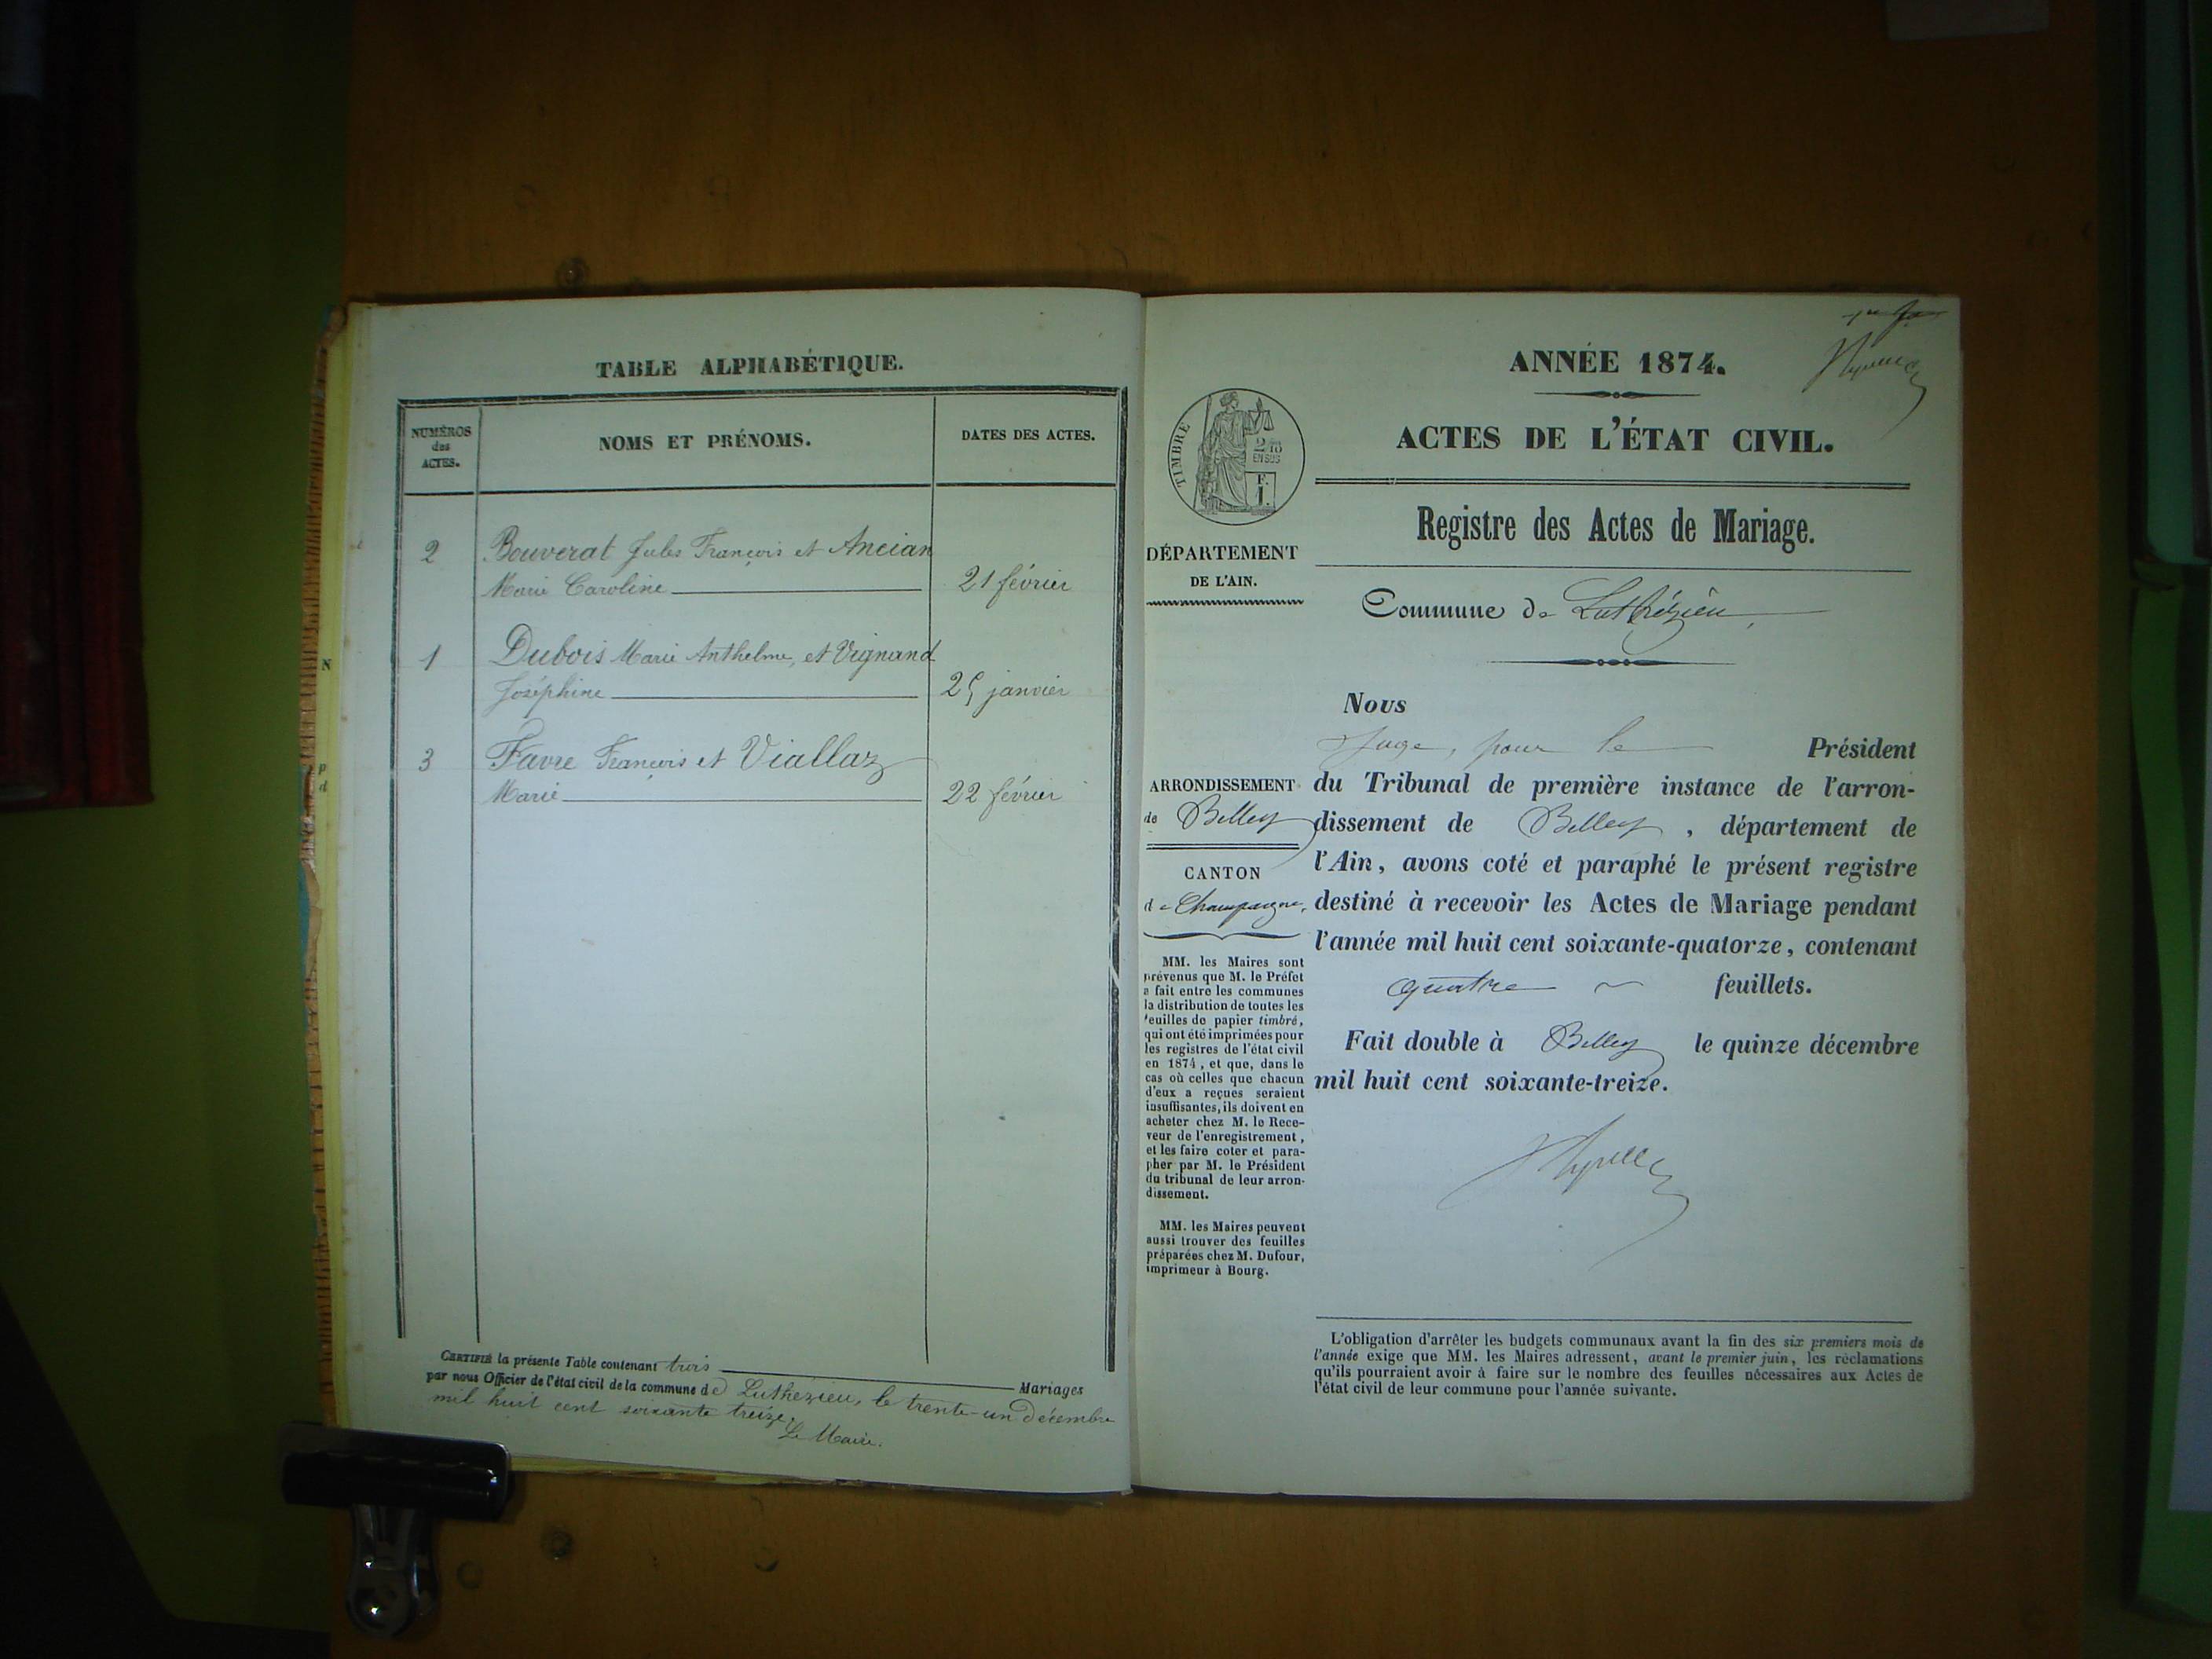 TABLE ALPHABÉTIQUE.
NUMÉROS
des
ACTES.
NOMS ET PRÉNOMS.
DATES DES ACTES.
2 Bouverat Jules François et Ancian
Marie Caroline 21 février
1 Dubois Marie Anthelme, et Vignand
Joséphine 25 janvier
3 Favre François et Viallaz
Marie 22 février
CERTIFIÉ la présente Table contenant trois Mariages
par nous Officier de l'état civil de la commune de Luthezieu, le trente-un Décembre
mil huit cent soixante treize,
Le Maire.
ANNÉE 1874.
ACTES DE L'ÉTAT CIVIL.
TIMBRE
2/10
EN SUS
F.
1.
Registre des Actes de Mariage.
DÉPARTEMENT
DE L'AIN.
Commune de Luthézieu,
ARRONDISSEMENT
de Belley
CANTON
de Champagne,
MM. les Maires sont
prévenus que M. le Préfet
a fait entre les communes
la distribution de toutes les
feuilles de papier timbré,
qui ont été imprimées pour
les registres de l'état civil
en 1874, et que, dans le
cas où celles que chacun
d'eux a reçues seraient
insuffisantes, ils doivent en
acheter chez M. le Rece-
veur de l'enregistrement,
et les faire coter et para-
pher par M. le Président
du tribunal de leur arron-
dissement.
MM. les Maires peuvent
aussi trouver des feuilles
préparées chez M. Dufour,
imprimeur à Bourg.
Nous
Juge, pour le Président
du Tribunal de première instance de l'arron-
dissement de Belley, département de
l'Ain, avons coté et paraphé le présent registre
destiné à recevoir les Actes de Mariage pendant
l'année mil huit cent soixante-quatorze, contenant
quatre feuillets.
Fait double à Belley le quinze décembre
mil huit cent soixante-treize.
L'obligation d'arrêter les budgets communaux avant la fin des six premiers mois de
l'année exige que MM. les Maires adressent, avant le premier juin, les réclamations
qu'ils pourraient avoir à faire sur le nombre des feuilles nécessaires aux Actes de
l'état civil de leur commune pour l'année suivante.